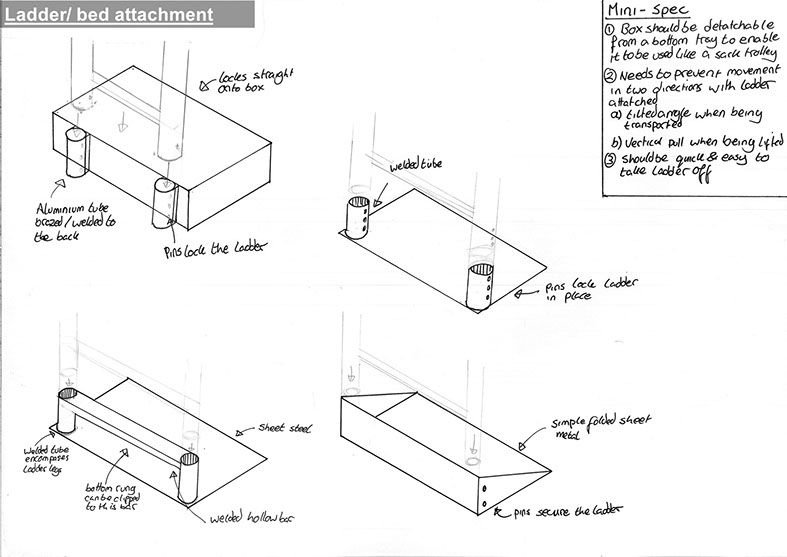 Ladder/ bed attachment
Mini-Spec
① Box should be detatchable
from a bottom tray to enable
it to be used like a sack trolley
② Needs to prevent movement
in two directions with ladder
attatched
a) tilted angle when being
transported
b) Vertical pull when being lifted
③ Should be quick & easy to
take ladder off
Locks straight
onto box
Aluminium tube
brazed/welded to
the back
Pins lock the ladder
welded tube
pins lock ladder
in place
Sheet steel
Welded tube
encompases
ladder legs
bottom rung
can be clipped
to this bar
welded hollow bar
simple folded sheet
metal
pins secure the ladder